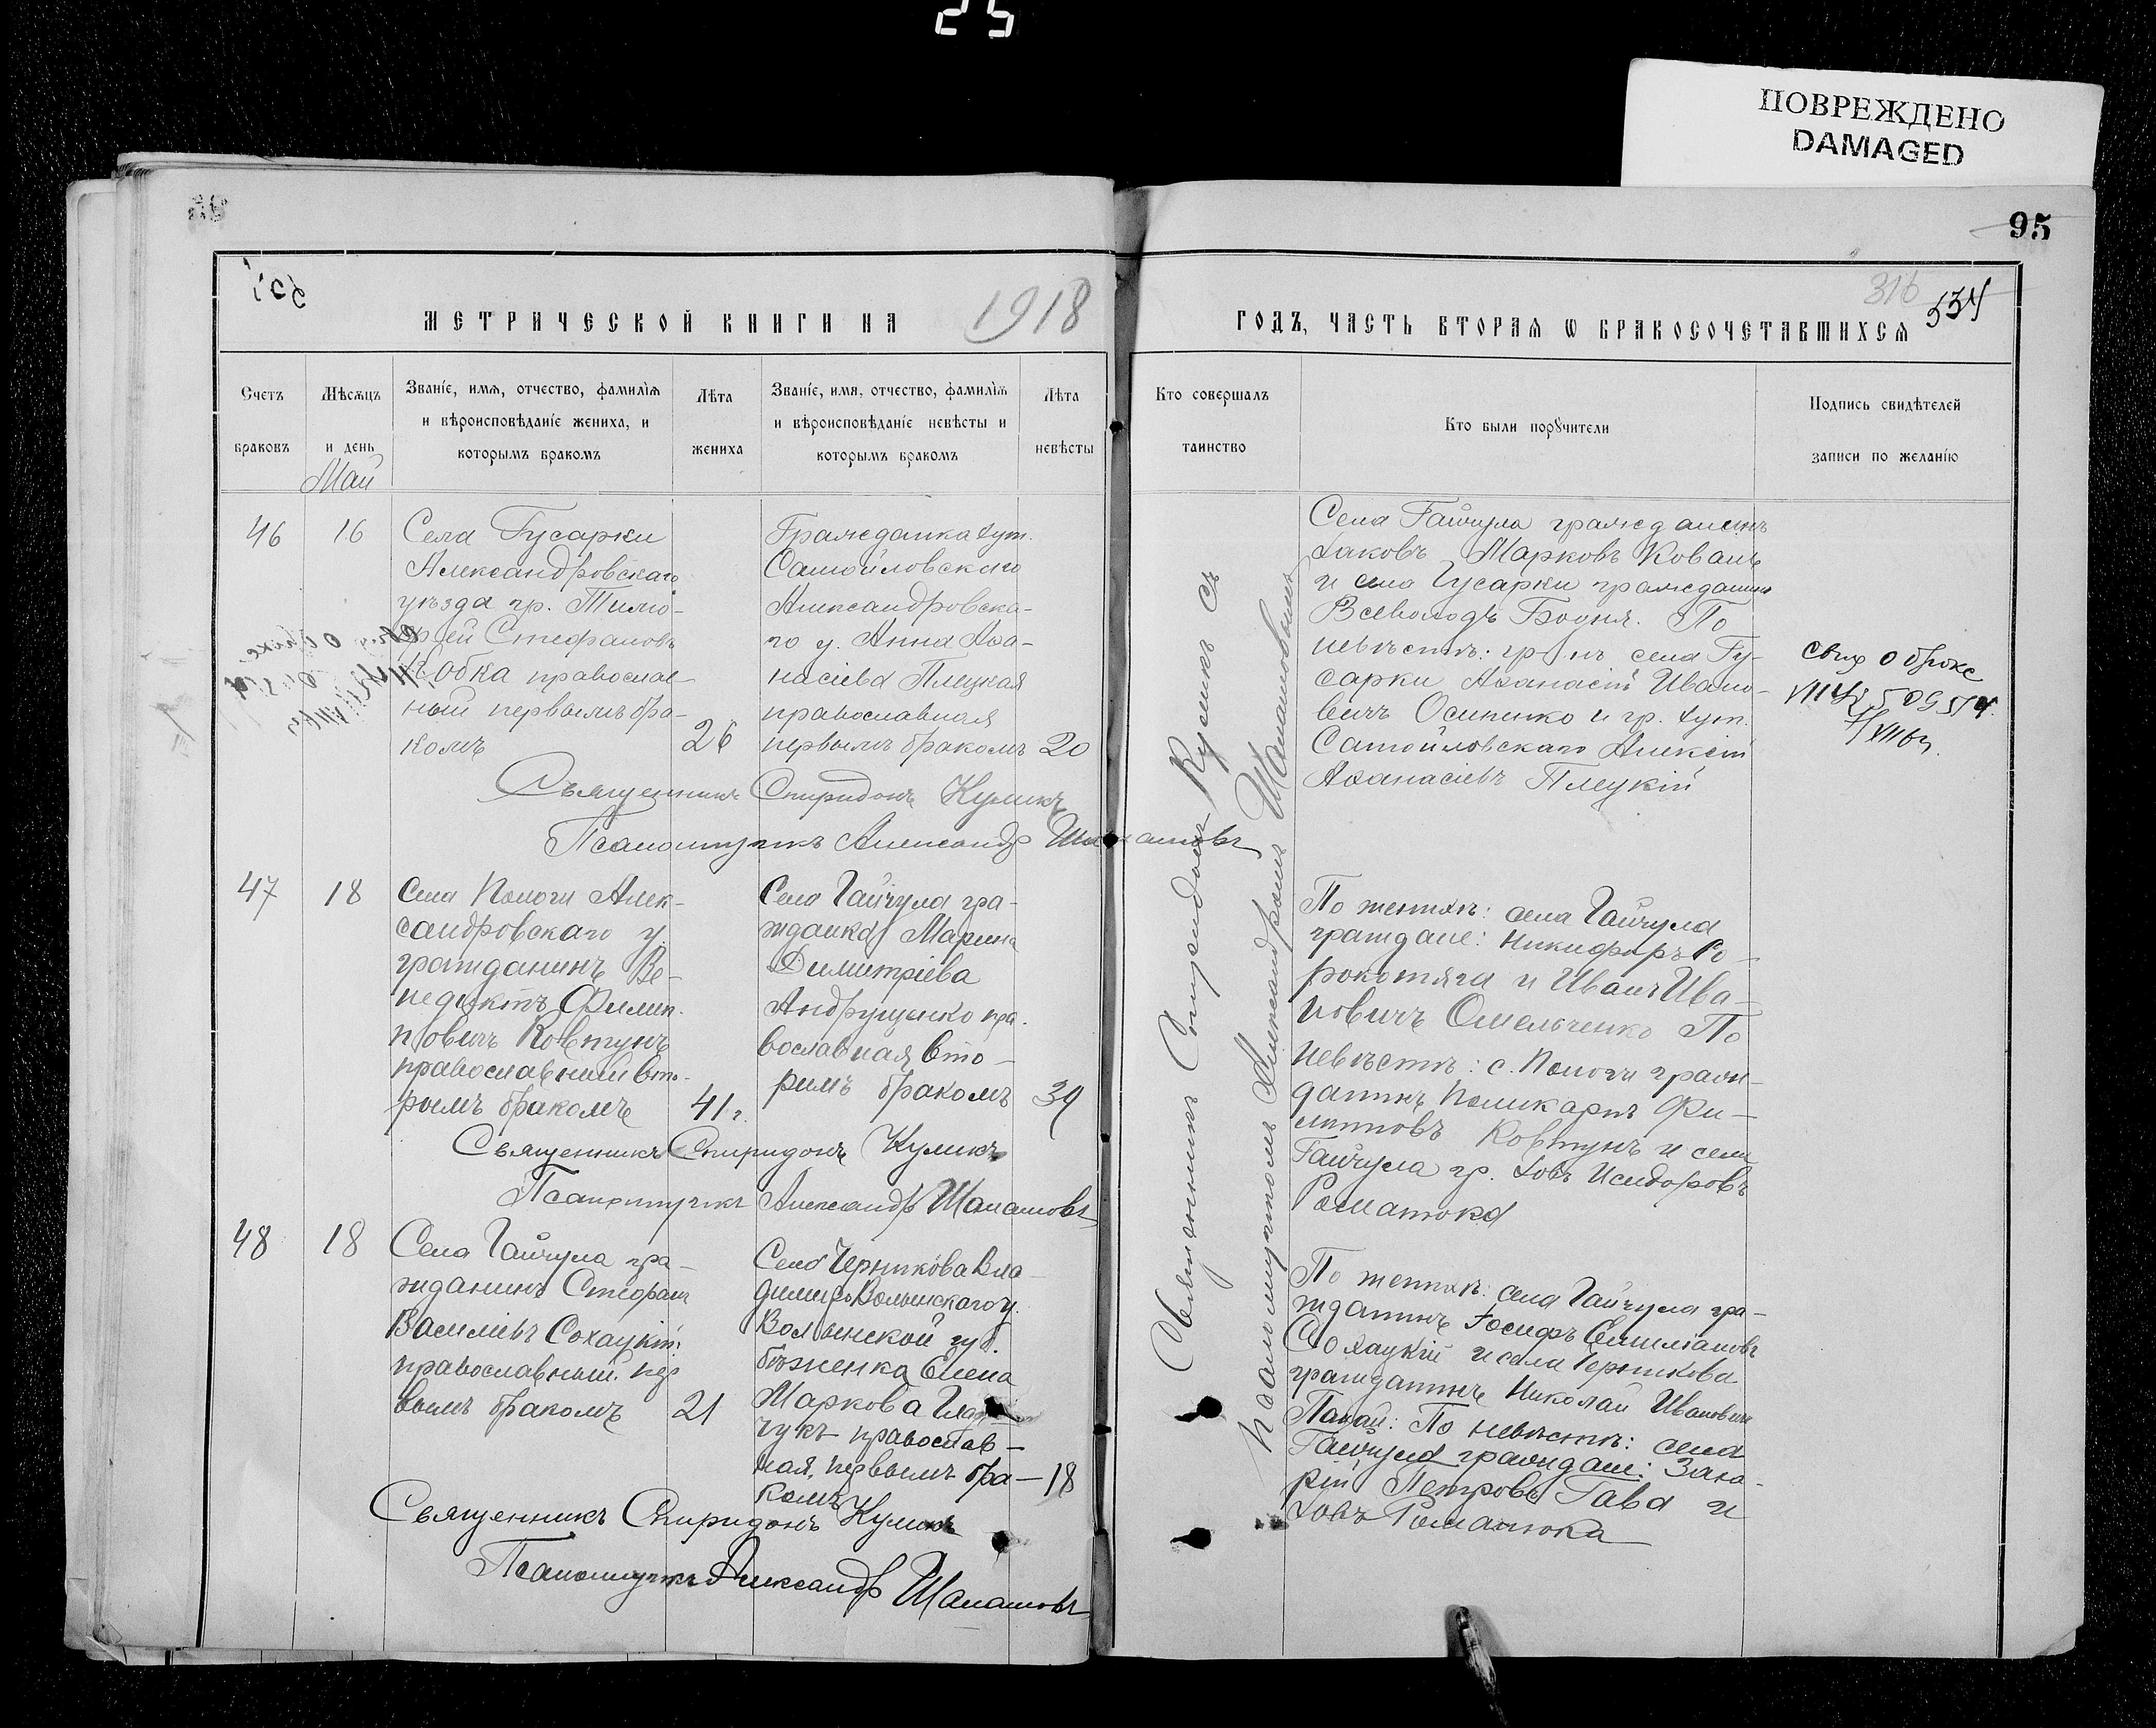 25
ПОВРЕЖДЕНО
DAMAGED
95
МЕТРИЧЕСКОЙ КНИГИ НА 1918
ГОДЪ, ЧАСТЬ ВТОРАЯ Ѡ БРАКОСОЧЕТАВШИХСЯ
316
534
Счетъ браковъ
Мѣсяцъ и день
Званіе, имя, отчество, фамилія
и вѣроисповѣданіе жениха, и
которымъ бракомъ
Лѣта жениха
Званіе, имя, отчество, фамилія
и вѣроисповѣданіе невѣсты и
которымъ бракомъ
Лѣта невѣсты
Кто совершалъ таинство
Кто были порꙋчители
Подпись свидѣтелей
записи по желанію
Май
46
16
Села Гусарки
Александровскаго
уѣзда гр. Тимо-
фей Стефановъ
Кобка православ-
ный первымъ бра-
комъ
26
Гражданка хут.
Самойловскаго
Александровска-
го у. Анна Аѳа-
насіева Плецкая
православная
первымъ бракомъ
20
Священникъ Спиридонъ Куликъ
Псаломщикъ Александръ
Села Гайчула гражданинъ
Іаковъ Марковъ Коваль
и села Гусарки гражданинъ
Всеволодъ Бодня. По
невѣстѣ: гр-нъ села Гу-
сарки Аѳанасій Ивано-
вичъ Осипенко и гр. хут.
Самойловскаго Алексій
Аѳанасіевъ Плецкій
о браке
47
18
Села Пологи Алек-
сандровскаго у.
гражданинъ Ве-
недиктъ Филип-
повичъ Ковтунъ
православный вто-
рымъ бракомъ
41 г.
Села Гайчула гра-
жданка Марина
Димитріева
Андрущенко пра-
вославная вто-
римъ бракомъ
39
Священникъ Спиридонъ Куликъ
Псаломщикъ Александръ
По женихѣ: села Гайчула
граждане: Никифоръ
и Иванъ Ива-
новичъ Омельченко По
невѣстѣ: с. Пологи граж-
данинъ Поликарпъ Фи-
липповъ Ковтунъ и села
Гайчула гр. Іовъ Исидоровъ
48
18
Села Гайчула гра-
жданинъ Стефанъ
Василіевъ Сохацкій
православный. пер
вымъ бракомъ
21
Села Черникова Вла-
димиръ Волынскаго у.
Волынской губ.
бѣженка Елена
Маркова
православ-
ная, первымъ бра-
комъ
18
Священникъ Спиридонъ Куликъ
Псаломщикъ Александръ
По женихѣ: села Гайчула гра-
жданинъ Іосифъ
Сохацкій и села Черникова
гражданинъ Николай Ивановъ
По невѣстѣ: села
Гайчула граждане: Заха-
рій Петровъ Гава и
Іовъ
Священникъ Спиридонъ Куликъ съ
псаломщикомъ Александромъ